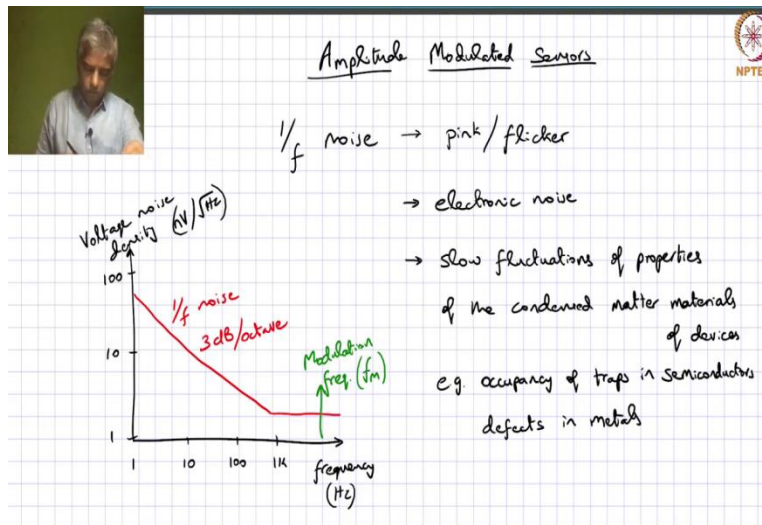 Amplitude Modulated Sensors
NPTEL
1/f noise → pink/flicker
→ electronic noise
→ slow fluctuations of properties
of the condensed matter materials
of devices
e.g. occupancy of traps in semiconductors
defects in metals
Voltage noise
density (nV/√Hz)
100
10
1
1/f noise
3dB/octave
Modulation
freq. (fm)
1 10 100 1K
frequency
(Hz)